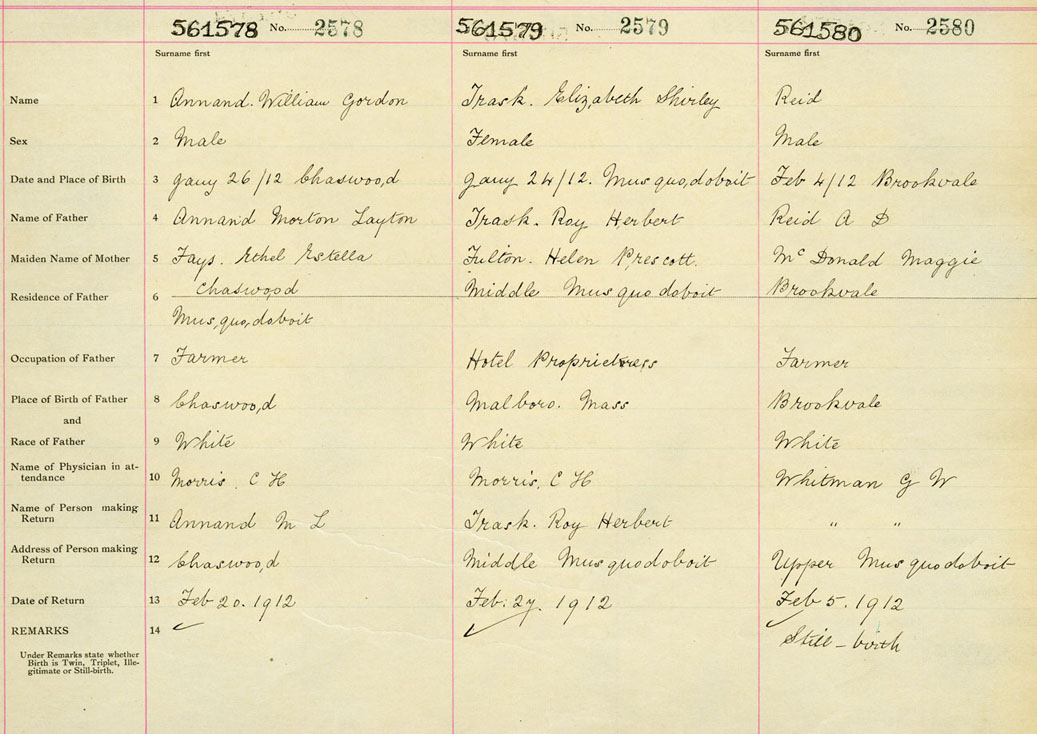 561578 No. 2578 561579 No. 2579 561580 No. 2580
Surname first Surname first Surname first
Name 1 Annand. William Gordon Trask. Elizabeth Shirley Reid
Sex 2 Male Female Male
Date and Place of Birth 3 Jany 26/12 Chaswood Jany 24/12. Musquodoboit Feb 4/12 Brookvale
Name of Father 4 Annand Morton Layton Trask. Roy Herbert Reid A D
Maiden Name of Mother 5 Fays. Ethel Estella Fulton. Helen Prescott. McDonald Maggie
Residence of Father 6 Chaswood Middle Musquodoboit Brookvale
Musquodoboit
Occupation of Father 7 Farmer Hotel Proprietress Farmer
Place of Birth of Father 8 Chaswood Malboro. Mass Brookvale
and
Race of Father 9 White White White
Name of Physician in at-
tendance 10 Morris, C H Morris, C H Whitman G W
Name of Person making
Return 11 Annand M L Trask. Roy Herbert " "
Address of Person making
Return 12 Chaswood Middle Musquodoboit Upper Musquodoboit
Date of Return 13 Feb 20. 1912 Feb. 27. 1912 Feb 5. 1912
REMARKS 14 ✓ ✓ ✓ Still-birth
Under Remarks state whether
Birth is Twin, Triplet, Ille-
gitimate or Still-birth.